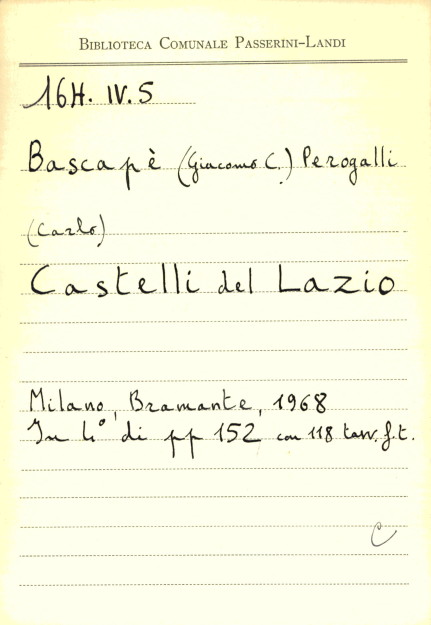 BIBLIOTECA COMUNALE PASSERINI-LANDI
16H. IV. 5
Bascapè (Giacomo C.) Perogalli
(Carlo)
Castelli del Lazio
Milano, Bramante, 1968
In 4° di pp 152 con 118 tavv. f.t.
C